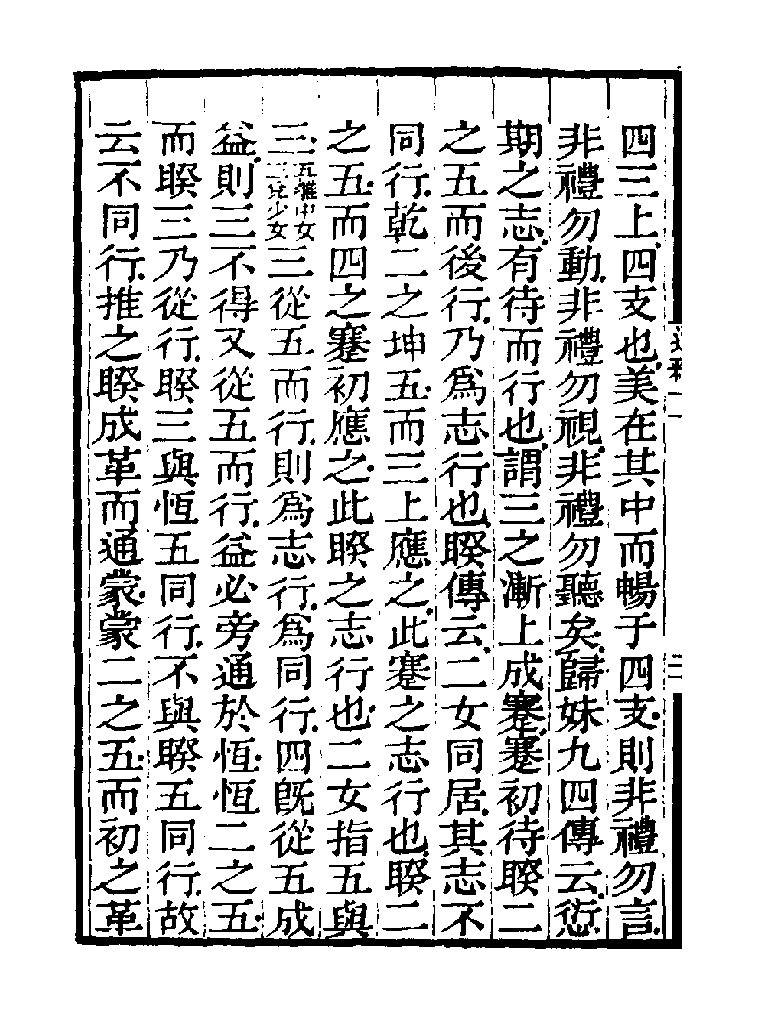 四三上四支也美在其中而暢于四支則非禮勿言
非禮勿動非禮勿視非禮勿聽矣歸妹九四傳云愆
期之志有待而行也謂三之漸上成蹇蹇初待睽二
之五而後行乃爲志行也睽傳云二女同居其志不
同行乾二之坤五而三上應之此蹇之志行也睽二
之五而四之蹇初應之此睽之志行也二女指五與
三五離中女三兌少女三從五而行則爲志行爲同行四旣從五成
益則三不得又從五而行益必旁通於恆恆二之五
而睽三乃從行睽三與恆五同行不與睽五同行故
云不同行推之睽成革而通蒙蒙二之五而初之革